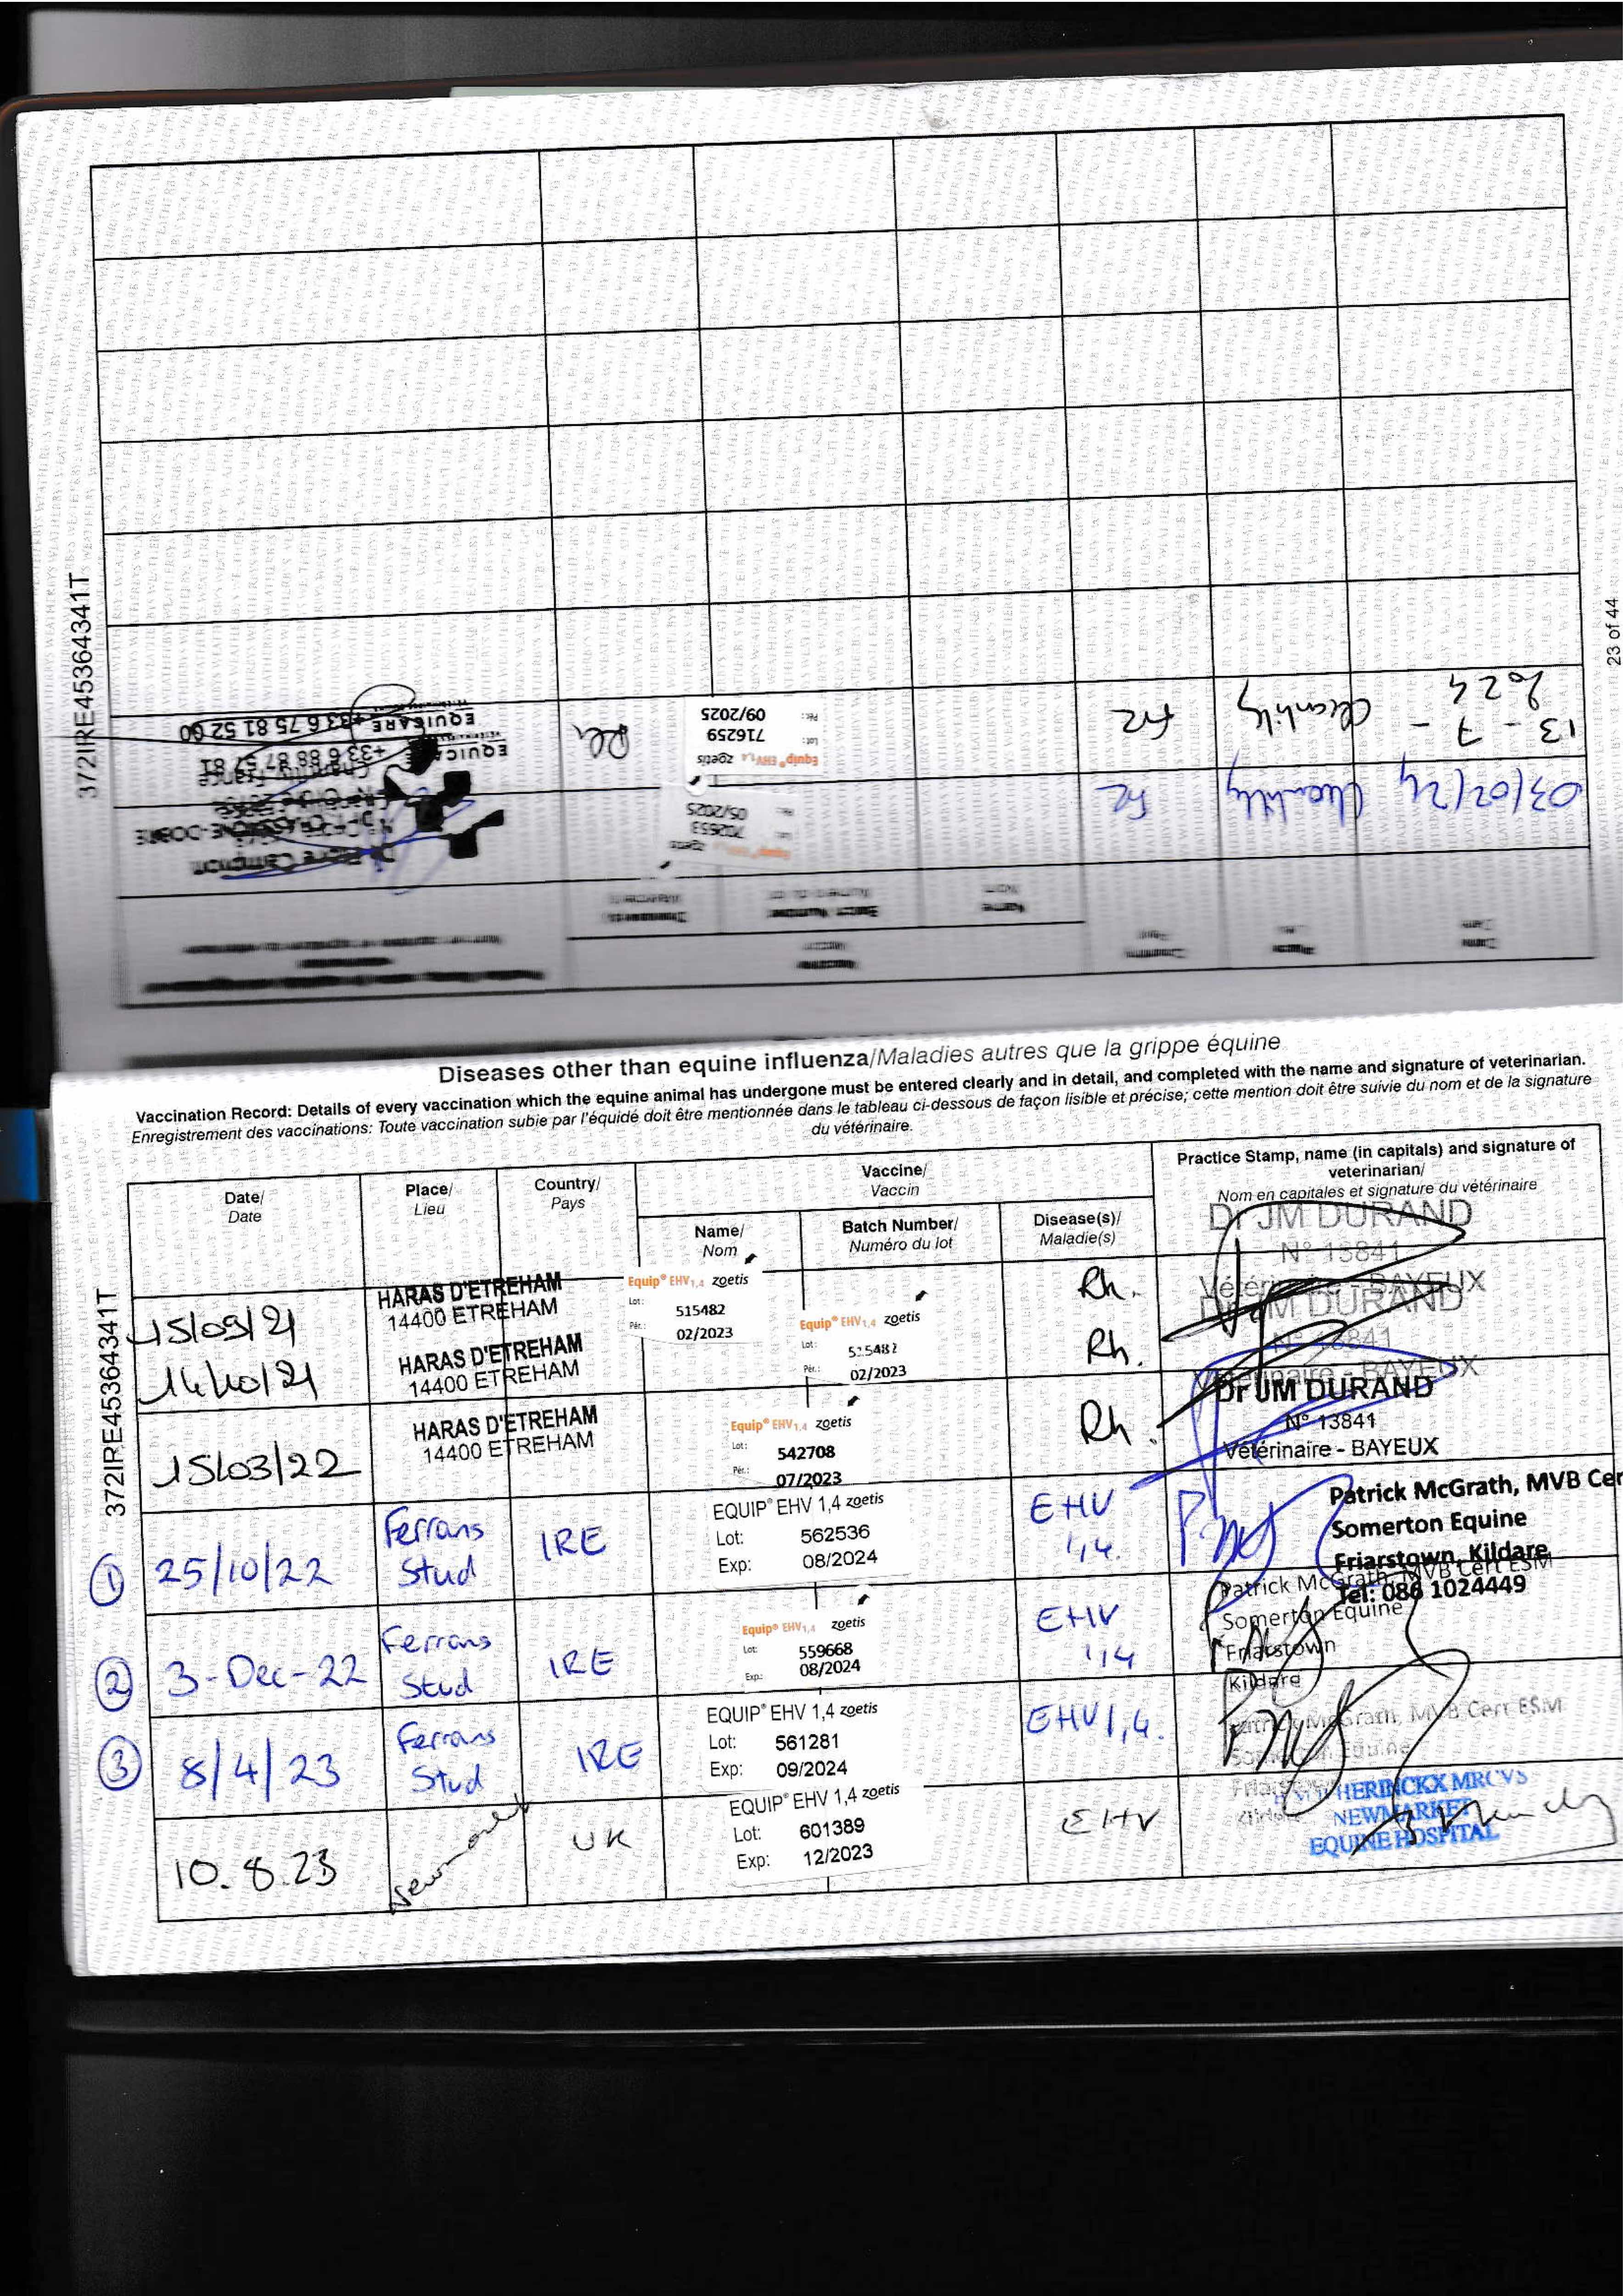 372IRE45364341T
23 of 44
Date
Place
Country
Name
Batch Number
03/02/24 Chantilly Fr
zoetis
702653
05/2025
13 - 7 - 2024 Chantilly Fr
Equip® EHV1,4 zoetis
Lot: 716259
Pér.: 09/2025
Rh
Chantilly France
+33 6 88 87 57 81
EQUICARE +33 6 75 81 52 60
Diseases other than equine influenza/Maladies autres que la grippe équine
Vaccination Record: Details of every vaccination which the equine animal has undergone must be entered clearly and in detail, and completed with the name and signature of veterinarian.
Enregistrement des vaccinations: Toute vaccination subie par l'équidé doit être mentionnée dans le tableau ci-dessous de façon lisible et précise; cette mention doit être suivie du nom et de la signature
du vétérinaire.
372IRE45364341T
Date/
Date
Place/
Lieu
Country/
Pays
Vaccine/
Vaccin
Name/
Nom
Batch Number/
Numéro du lot
Disease(s)/
Maladie(s)
Practice Stamp, name (in capitals) and signature of
veterinarian/
Nom en capitales et signature du vétérinaire
15/09/21
HARAS D'ETREHAM
14400 ETREHAM
Equip® EHV1,4 zoetis
Lot: 515482
Pér.: 02/2023
Rh.
Dr JM DURAND
N° 13841
Vétérinaire - BAYEUX
14/10/21
HARAS D'ETREHAM
14400 ETREHAM
Equip® EHV1,4 zoetis
Lot: 515482
Pér.: 02/2023
Rh.
Dr JM DURAND
N° 13841
Vétérinaire - BAYEUX
15/03/22
HARAS D'ETREHAM
14400 ETREHAM
Equip® EHV1,4 zoetis
Lot: 542708
Pér.: 07/2023
Rh.
Dr JM DURAND
N° 13841
Vétérinaire - BAYEUX
① 25/10/22
Ferrans
Stud
IRE
EQUIP® EHV 1,4 zoetis
Lot: 562536
Exp: 08/2024
EHV
1,4.
Patrick McGrath, MVB Cer
Somerton Equine
Friarstown, Kildare
Tel: 086 1024449
② 3-Dec-22
Ferrans
Stud
IRE
Equip® EHV1,4 zoetis
Lot: 559668
Exp.: 08/2024
EHV
1,4
Patrick McGrath, MVB Cert ESM
Somerton Equine
Friarstown
Kildare
③ 8/4/23
Ferrans
Stud
IRE
EQUIP® EHV 1,4 zoetis
Lot: 561281
Exp: 09/2024
EHV1,4.
Patrick McGrath, MVB Cert ESM
Somerton Equine
Friarstown
Kildare
10.8.23
Newmarket
UK
EQUIP® EHV 1,4 zoetis
Lot: 601389
Exp: 12/2023
EHV
HERINCKX MRCVS
NEWMARKET
EQUINE HOSPITAL